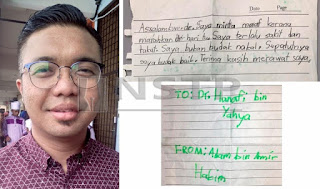 Date
Page
Assalamualaikum de. Saya minta maaf kerana
mematikan dr. hari tu. Saya terlalu sakit dan
takut. Saya bukan budak nakal. Sepatutnya
saya budak baik. Terima kasih merawat saya.
NSTP
TO: Dr. Hanafi bin
Yahya
FROM: Adam bin Amir
Hakim